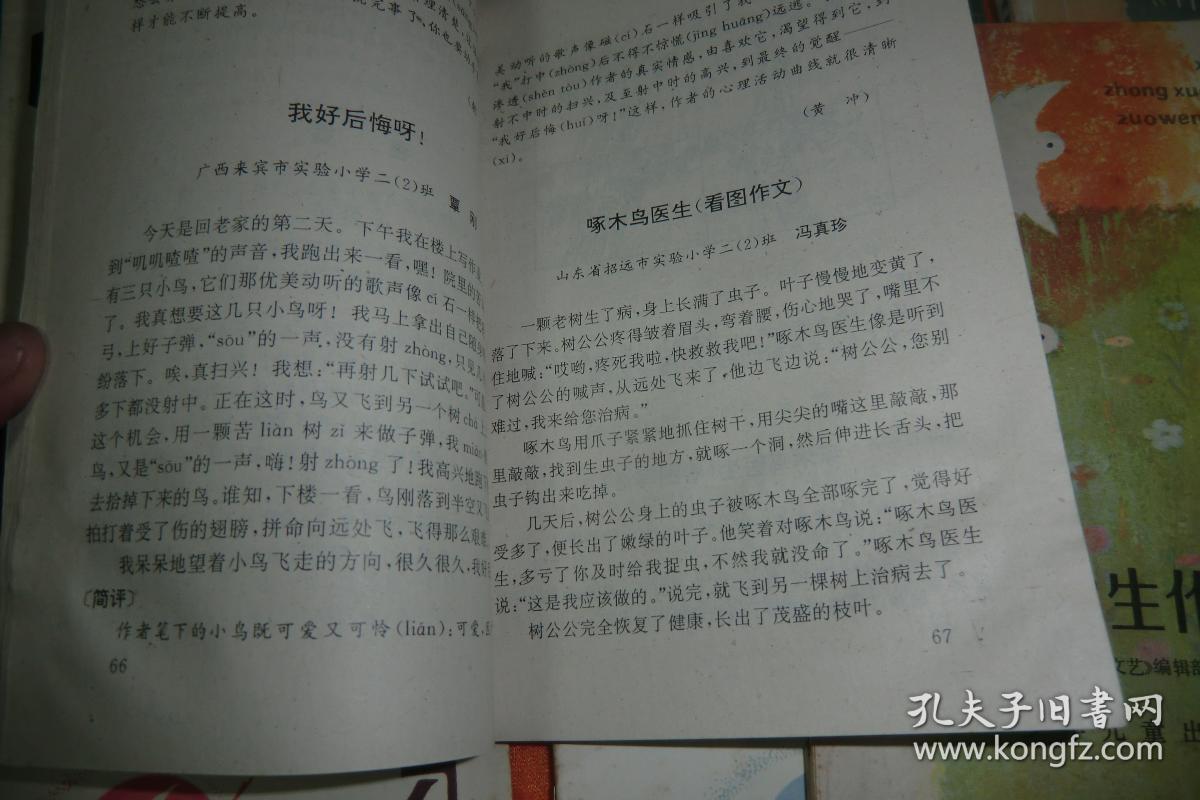 样才能不断提高。
我好后悔呀！
广西来宾市实验小学二(2)班 覃 刚
今天是回老家的第二天。下午我在楼上写作
到“叽叽喳喳”的声音，我跑出来一看，嘿！院里的
有三只小鸟，它们那优美动听的歌声像cí石一样把
了。我真想要这几只小鸟呀！我马上拿出自己随身
弓，上好子弹，“sōu”的一声，没有射zhòng，只见几
纷落下。唉，真扫兴！我想：“再射几下试试吧。”可
多下都没射中。正在这时，鸟又飞到另一个树chà上
这个机会，用一颗苦liàn树zǐ来做子弹，我miáo
鸟，又是“sōu”的一声，嗨！射zhòng了！我高兴地跑下
去拾掉下来的鸟。谁知，下楼一看，鸟刚落到半空又
拍打着受了伤的翅膀，拼命向远处飞，飞得那么艰难
我呆呆地望着小鸟飞走的方向，很久很久，我好
〔简评〕
作者笔下的小鸟既可爱又可怜(lián)：可爱，
66
美动听的歌声像磁(cí)石一样吸引了我
“我”打中(zhòng)后不得不惊慌(jīng huāng)远逃。
渗透(shèn tòu)作者的真实情感，由喜欢它，渴望得到它，到
射不中时的扫兴，及至射中时的高兴，到最终的觉醒——
“我好后悔(huǐ)呀！”这样，作者的心理活动曲线就很清晰
(xī)。
(黄 冲)
啄木鸟医生(看图作文)
山东省招远市实验小学二(2)班 冯真珍
一颗老树生了病，身上长满了虫子。叶子慢慢地变黄了，
落了下来。树公公疼得皱着眉头，弯着腰，伤心地哭了，嘴里不
住地喊：“哎哟，疼死我啦，快救救我吧！”啄木鸟医生像是听到
了树公公的喊声，从远处飞来了，他边飞边说：“树公公，您别
难过，我来给您治病。”
啄木鸟用爪子紧紧地抓住树干，用尖尖的嘴这里敲敲，那
里敲敲，找到生虫子的地方，就啄一个洞，然后伸进长舌头，把
虫子钩出来吃掉。
几天后，树公公身上的虫子被啄木鸟全部啄完了，觉得好
受多了，便长出了嫩绿的叶子。他笑着对啄木鸟说：“啄木鸟医
生，多亏了你及时给我捉虫，不然我就没命了。”啄木鸟医生
说：“这是我应该做的。”说完，就飞到另一棵树上治病去了。
树公公完全恢复了健康，长出了茂盛的枝叶。
67
zhong xu
zuowen
文艺》编辑部
儿童出
孔夫子旧书网
www.kongfz.com